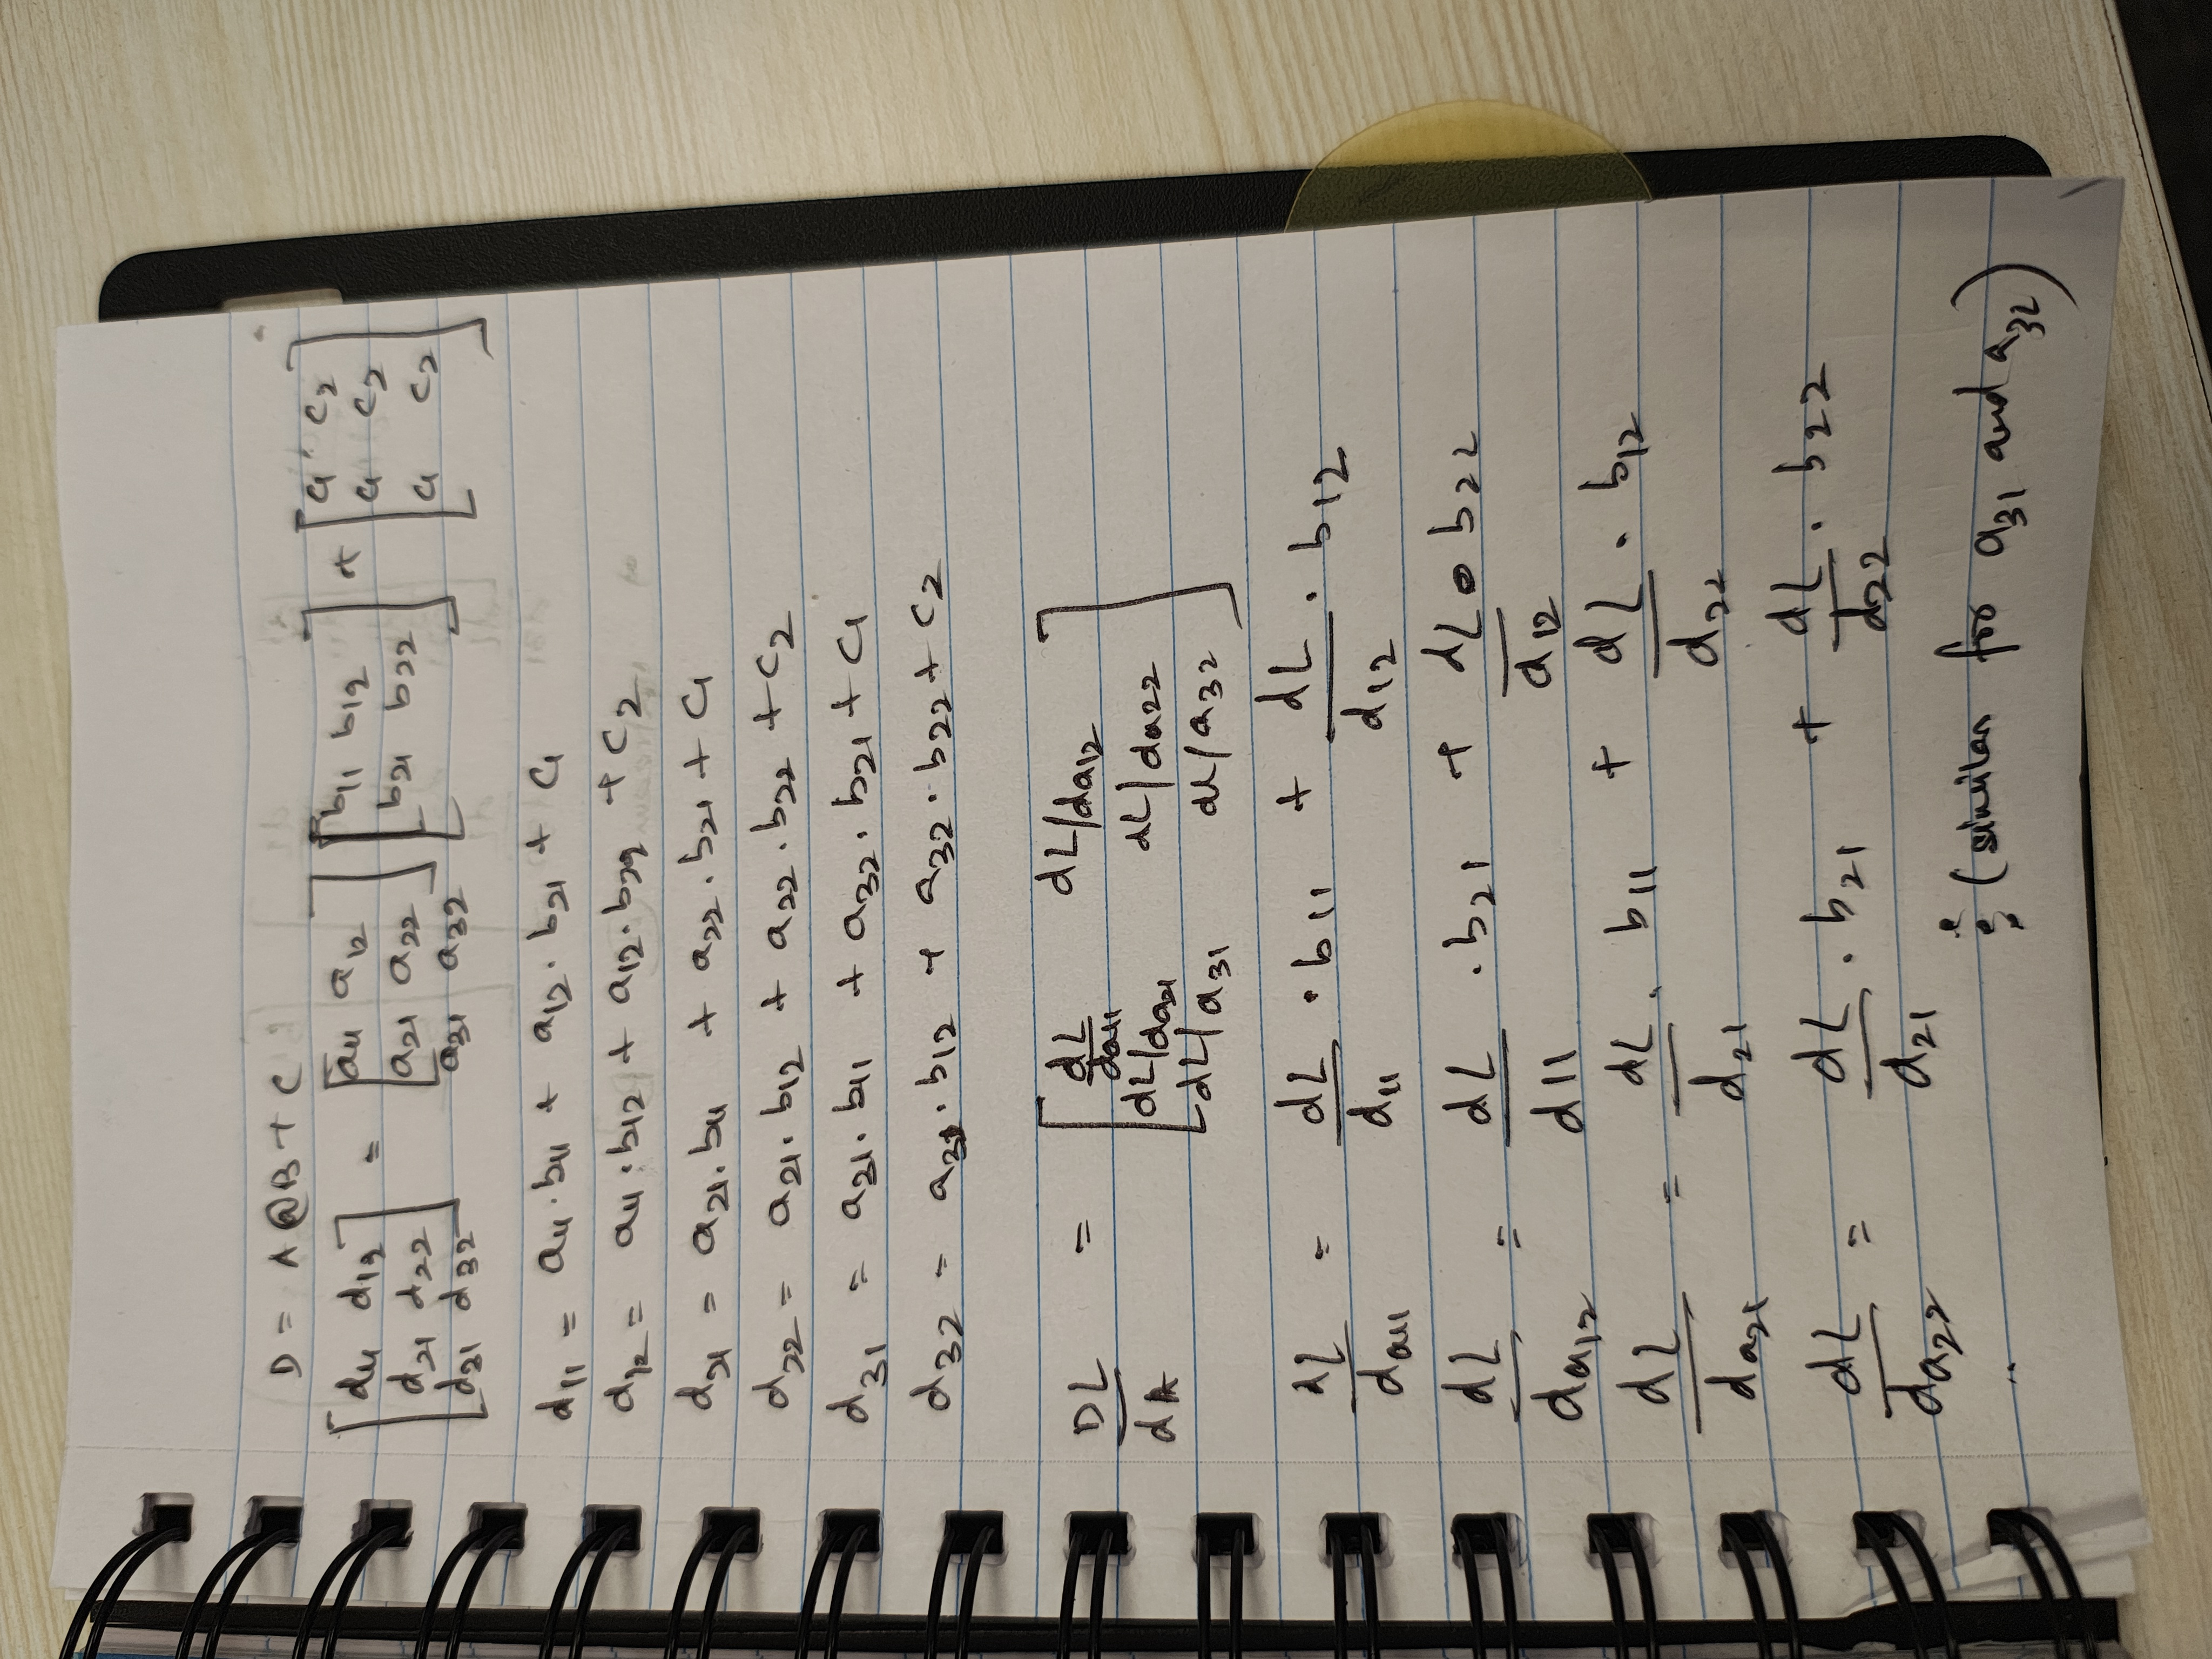 D = A @ B + C
[ d11 d12 ] = [ a11 a12 ] [ b11 b12 ] + [ c1 c2 ]
[ d21 d22 ] [ a21 a22 ] [ b21 b22 ] [ c1 c2 ]
[ d31 d32 ] a31 a32 [ c1 c2 ]
d11 = a11 . b11 + a12 . b21 + c1
d12 = a11 . b12 + a12 . b22 + c2
d21 = a21 . b11 + a22 . b21 + c1
d22 = a21 . b12 + a22 . b22 + c2
d31 = a31 . b11 + a32 . b21 + c1
d32 = a31 . b12 + a32 . b22 + c2
DL/dA = [ dL/da11 dL/da12 ]
[ dL/da21 dL/da22 ]
[ dL/a31 dL/a32 ]
dL/da11 = dL/d11 . b11 + dL/d12 . b12
dL/da12 = dL/d11 . b21 + dL/d12 . b22
dL/da21 = dL/d21 . b11 + dL/d22 . b12
dL/da22 = dL/d21 . b21 + dL/d22 . b22
.. ⋮ (similar for a31 and a32)